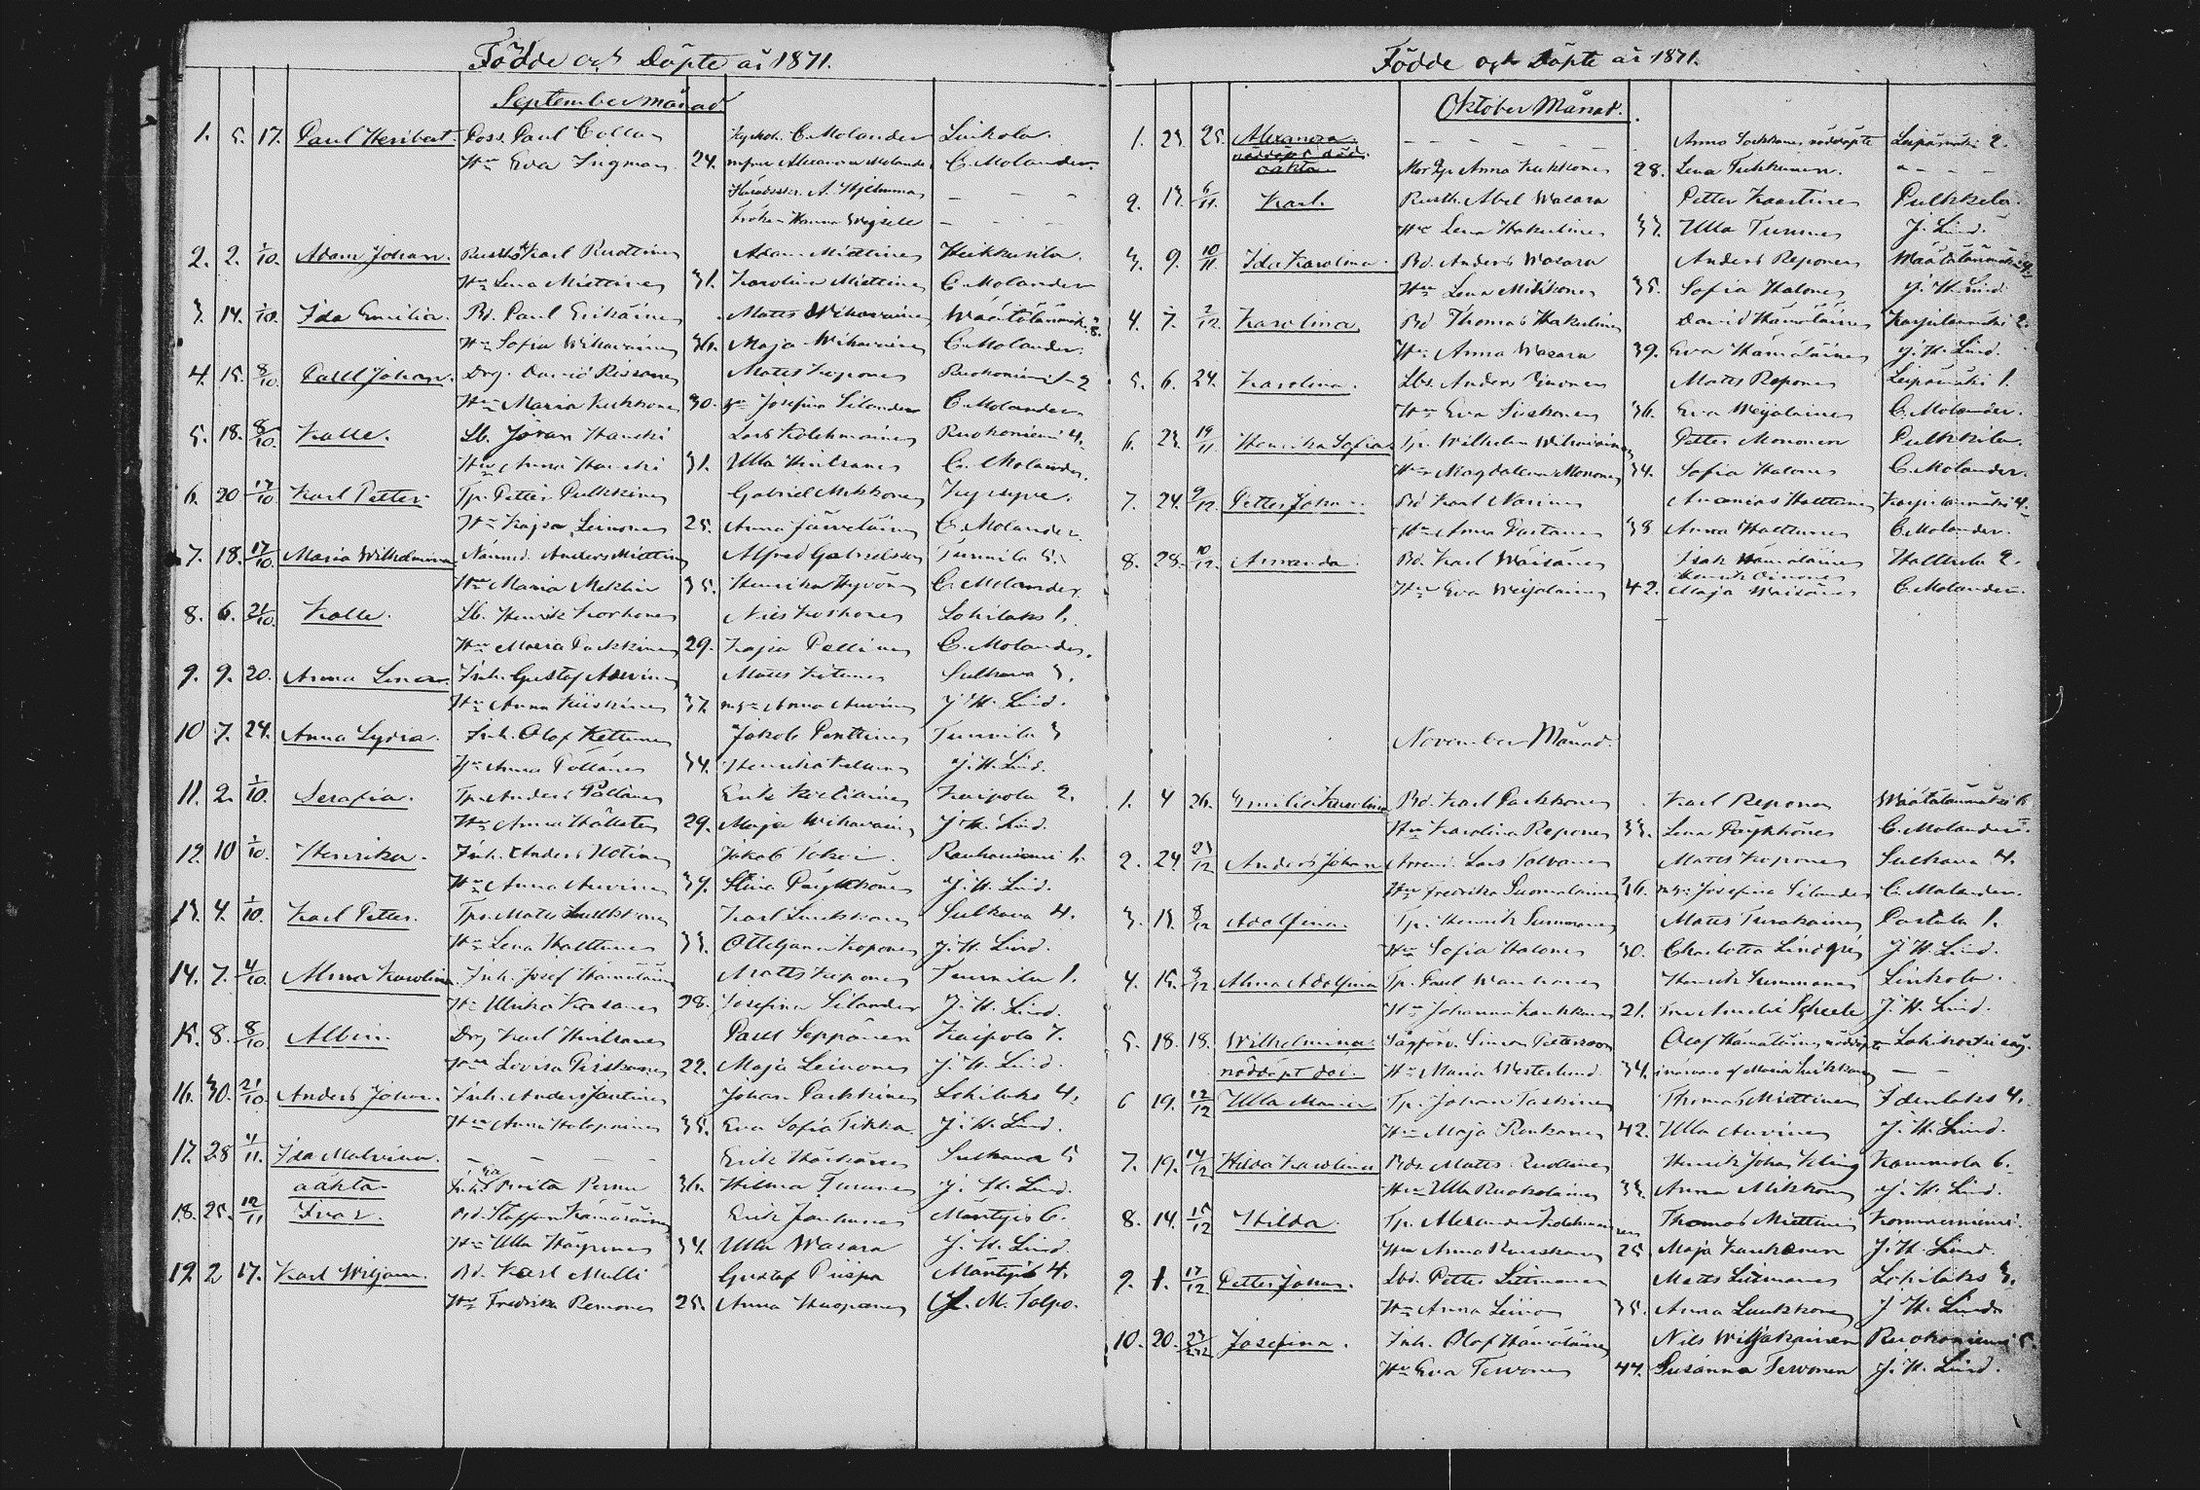 Födde och Döpte år 1871.
September månad
1. 5. 17. Paul Heribert. Poss. Paul Collan C. Molander Linkola.
Hu Eva Sigman 24. Alexandra Molander C. Molander.
A. Hjelmman — —
Fröken Hanna — —
2. 2. 1/10. Adam Johan. Karl Ruottinen Adam Miettinen Heikkurila.
Hu Lena Miettinen 31. Karolina Miettinen C. Molander
3. 14. 1/10. Ida Emilia. Bd. Paul Matts Wihavainen Määttälänmäki 8.
Hu Sofia Wihavainen 36. Maja Wihavainen C. Molander.
4. 15. 8/10. Paul Johan. Drg. David Rissanen Matts Koponen Ruokoniemi 2
Hu Maria Kukkonen 30. Josefina Silander C. Molander
5. 18. 8/10. Kalle. Lb. Jöran Hanski Lars Kolehmainen Ruokoniemi 4.
Hu Anna Hanski 31. Ulla C. Molander.
6. 20 17/10 Karl Petter. Tp. Petter Pulkkinen Gabriel Mikkonen
Hu Kajsa Leinonen 25. Anna Järveläinen C. Molander
7. 18. 17/10. Maria Wilhelmina Anders Miettinen Alfred Gabrielsson Tunnila 5.
Hu Maria Meklin 35. Henrika Hyvönen C. Molander
8. 6. 21/10. Kalle. Lb. Henrik Korhonen Nils Korhonen Lohilaks 1.
Hu Maria Parkkinen 29. Kajsa Pellinen C. Molander.
9. 9. 20. Anna Lena Inh. Gustaf Auvinen Matts Sulkava 3.
Hu Anna Kiiskinen 37. Anna Auvinen J. H. Lind.
10 7. 24. Anna Lydia. Inh. Olof Kettunen Jakob Penttinen Tunnila 3
Hu Anna Pöllänen 34. Henrika J. H. Lind.
11. 2. 1/10. Serafia. Tp. Anders Pöllänen Erik Kaipola 2.
Hu Anna 29. Maja Wihavainen J. H. Lind.
12. 10 1/10. Henrika. Inh. Anders Jakob Rauhaniemi 1.
Hu Anna Auvinen 39. Stina Päykkönen J. H. Lind.
13. 4. 1/10. Karl Petter. Tp. Matts Luukkonen Karl Luukkonen Sulkava 4.
Hu Lena Halttunen 33. Koponen J. H. Lind.
14. 7. 4/10. Alma Karolina. Inh. Josef Hämäläinen Matts Koponen Tunnila 1.
Hu Ulrika 28. Josefina Silander J. H. Lind.
15. 8. 8/10 Albin. Drg Karl Paul Seppänen Kaipola 7.
Lovisa 22. Maja Leinonen J. H. Lind.
16. 30. 21/10. Anders Johan. Inh. Anders Jantinen Johan Parkkinen Lohilaks 4.
Hu Anna Holopainen 35. Eva Sofia Tikka. J. H. Lind.
17. 28 11/11. Ida Malvina. — — — — Erik Härkönen Sulkava 5
oäkta. Brita Pernu 36. Hilma Turunen J. H. Lind.
18. 25. 12/11 Ivar. Bd. Staffan Kämäräinen Erik Janhunen Mäntyis 6.
Hu Ulla Häyrinen 34. Ulla Wasara J. H. Lind.
19. 2 17. Karl Wiljam. Bd. Karl Mulli Gustaf Piispa Mäntyis 4.
Hu Fredrika Remonen 25. Anna Haapanen M. Tolpo.
Födde och Döpte år 1871.
Oktober Månad.
1. 23. 25. Alexandra — — — — — Anna nöddöpte Leipämäki 2.
nöddöpt död.
oäkta Anna Kukkonen 28. Lena Turkkinen. — — —
2. 13. 6/11. Karl. Rusth. Abel Wasara Petter Kaartinen Pulkkila.
Hu Lena Hakulinen 37. Ulla Turunen J. Lind.
3. 9. 10/11. Ida Karolina. Bd. Anders Wasara Anders Reponen Määttälänmäki
Hu Lena Mikkonen 35. Sofia Halonen J. H. Lind.
4. 7. 2/12. Karolina Bd Thomas Hakulinen David Hämäläinen Karjulanmäki 2.
Hu Anna Wasara 39. Eva Hämäläinen J. H. Lind.
5. 6. 24. Karolina. Lbs. Anders Oinonen Matts Reponen Leipämäki 1.
Hu Eva Siiskonen 36. Eva Weijalainen C. Molander.
6. 23. 19/11. Henrika Sofia Tp. Wilhelm Wihavainen Petter Mononen Pulkkila.
Hu Magdalena Mononen 34. Sofia Halonen C. Molander.
7. 24. 9/12. Petter Johan. Bd Karl Ananias Halttunen Karjulanmäki 4.
Hu Anna Partanen 38 Anna Halttunen C. Molander.
8. 28. 10/12. Amanda. Bd. Karl Wäisänen Isak Hämäläinen Halttula 2.
Henrik Oinonen
Hu Eva Weijalainen 42. Maja Wäisänen C. Molander.
November Månad.
1. 4 26. Emilia Karolina Bd. Karl Parkkonen Karl Reponen Määttälänmäki 6
Hu Karolina Reponen 33. Lena Päykkönen C. Molander.
2. 24. 23/12 Anders Johan Lars Tolvanen Matts Koponen Sulkava 4.
Hu Fredrika Suomalainen 26. Josefina Silander C. Molander.
3. 13. 8/12 Adolfina. Tp. Henrik Summanen Matts Turakainen Partala 1.
Hu Sofia Halonen 30. Charlotta Lindqvist J. H. Lind.
4. 15. 9/12 Alma Adolfina Tp. Paul Wanhanen Henrik Summanen Linkola.
Hu Johanna Kaukkanen 21. Amelie Scheele J. H. Lind.
5. 18. 18. Wilhelmina Sågförv. Simon Pettersson Olof Hämäläinen nöddöpte Lohikoski såg.
nöddöpt död. Hu Maria Westerlund 34. i närvaro af Maria — —
6 19. 12/12 Ulla Maria Tp. Johan Taskinen Thomas Miettinen Idenlaks 4.
Hu Maja Roukanen 42. Ulla Auvinen J. H. Lind.
7. 19. 14/12 Hilda Karolina Bds. Matts Ruottinen Henrik Johan Kling Kammola 6.
Hu Ulla Ruokolainen 33. Anna Mikkonen J. H. Lind.
8. 14. 15/12 Hilda. Tp. Alexander Thomas Miettinen Kommerniemi.
Hu Anna Ruuskanen 25 Maja Kaukonen J. H. Lind.
9. 1. 17/12 Petter Johan. Lbd. Petter Litmanen Matts Litmanen Lohilaks 3.
Hu Anna 35. Anna Luukkonen J. H. Lind
10. 20. 27/12 Josefina. Inh. Olof Hämäläinen Nils Wiljakainen Ruokoniemi 5.
Hu Eva Tervonen 44. Susanna Tervonen J. H. Lind.